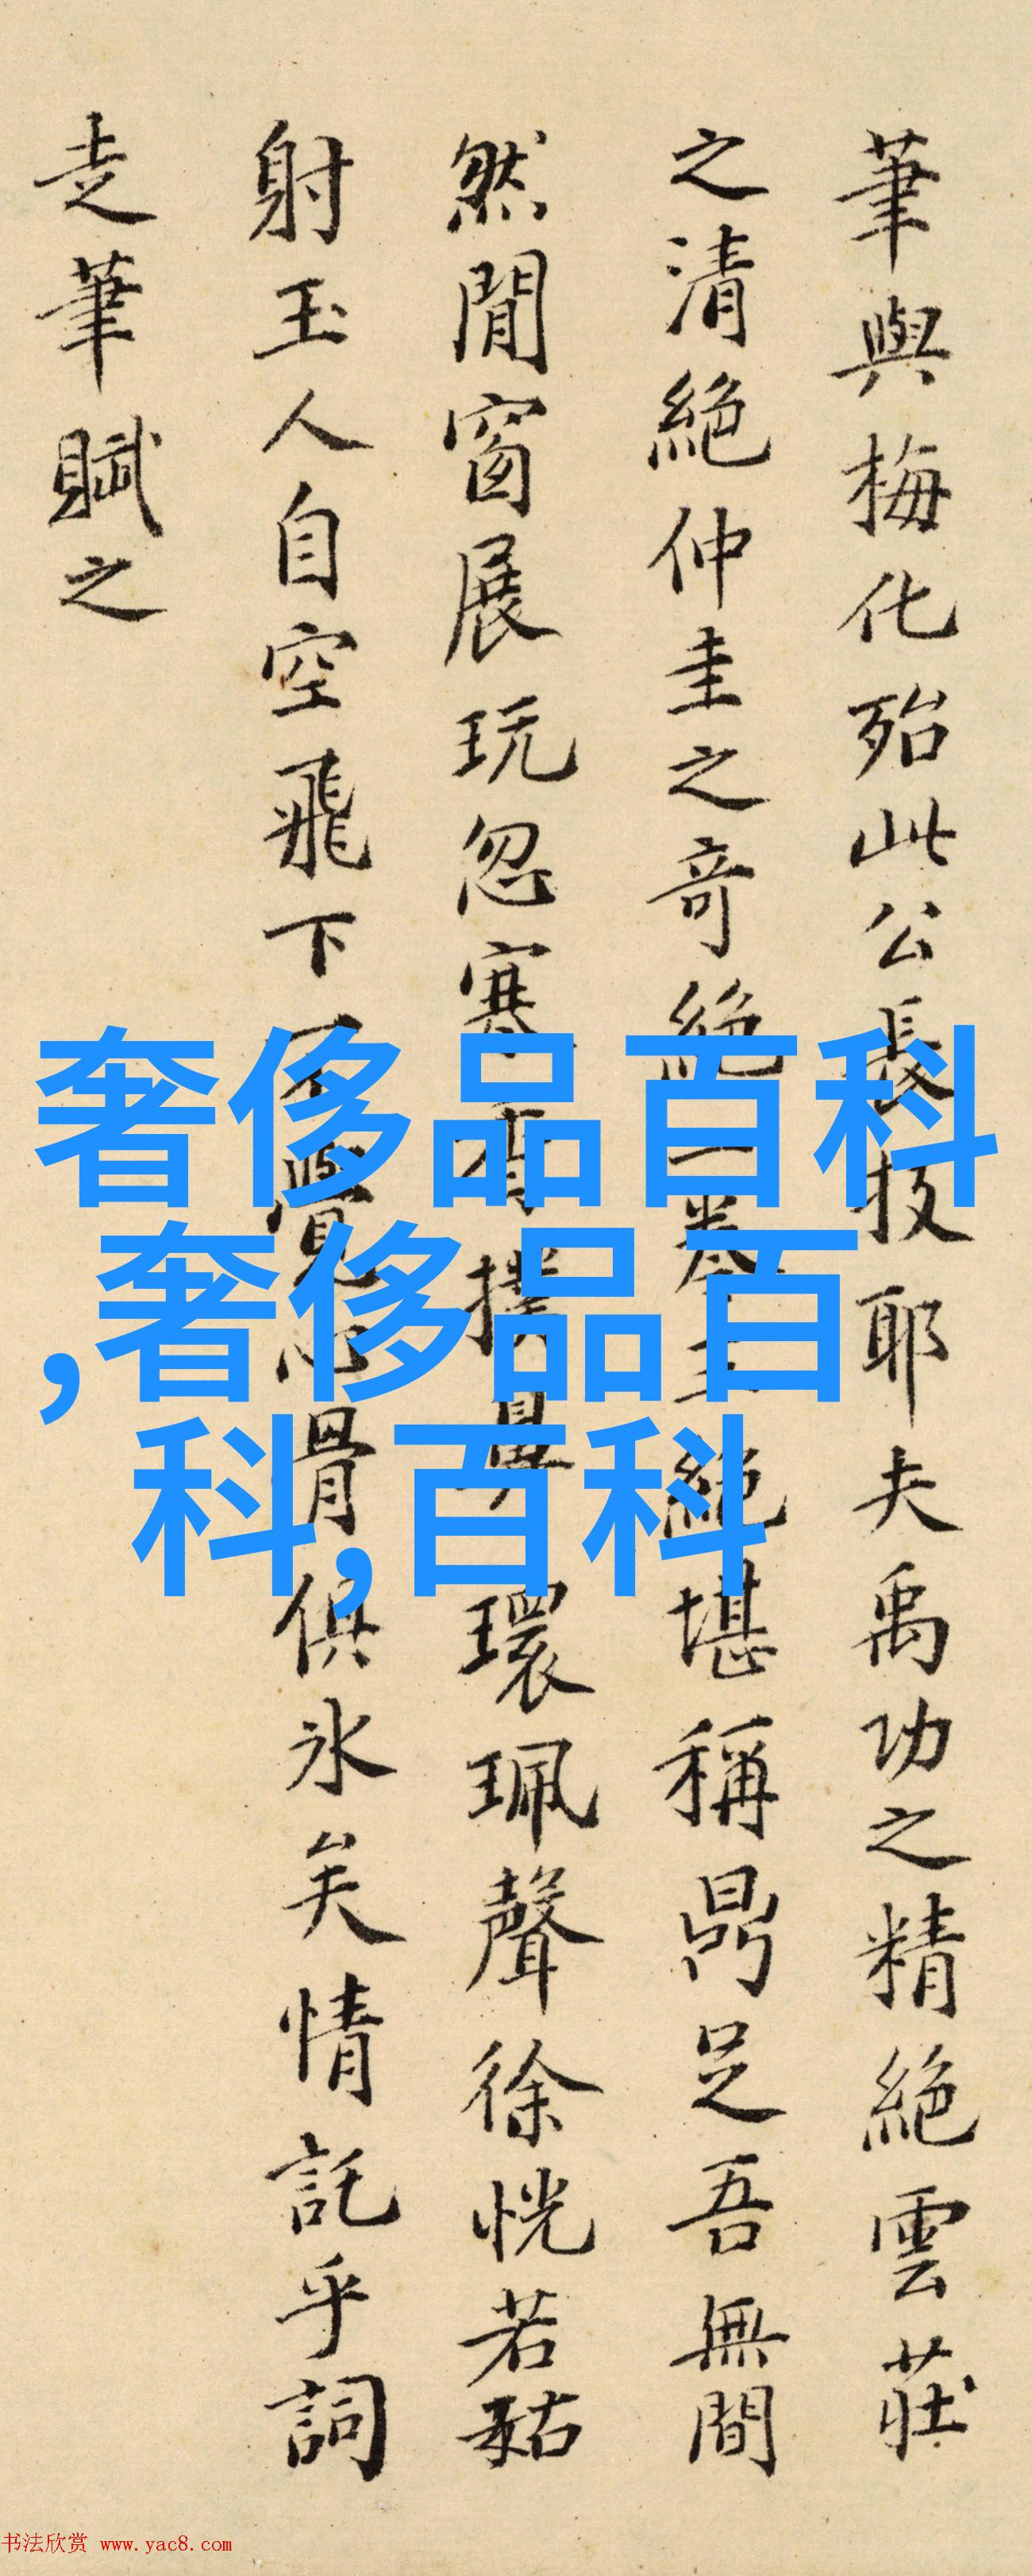 筆與梅化殆此公長技耶夫禹功之精絕雲莊
之清絕仲圭之奇絕一卷三絕堪稱鼎足吾無間
然閒窗展玩忽寒香撲鼻環珮聲徐恍若藐姑
射玉人自空飛下不覺心骨俱氷矣情託乎詞
走筆賦之
奢侈品百科
,奢侈品百
科,百科
书法欣赏 www.yac8.com